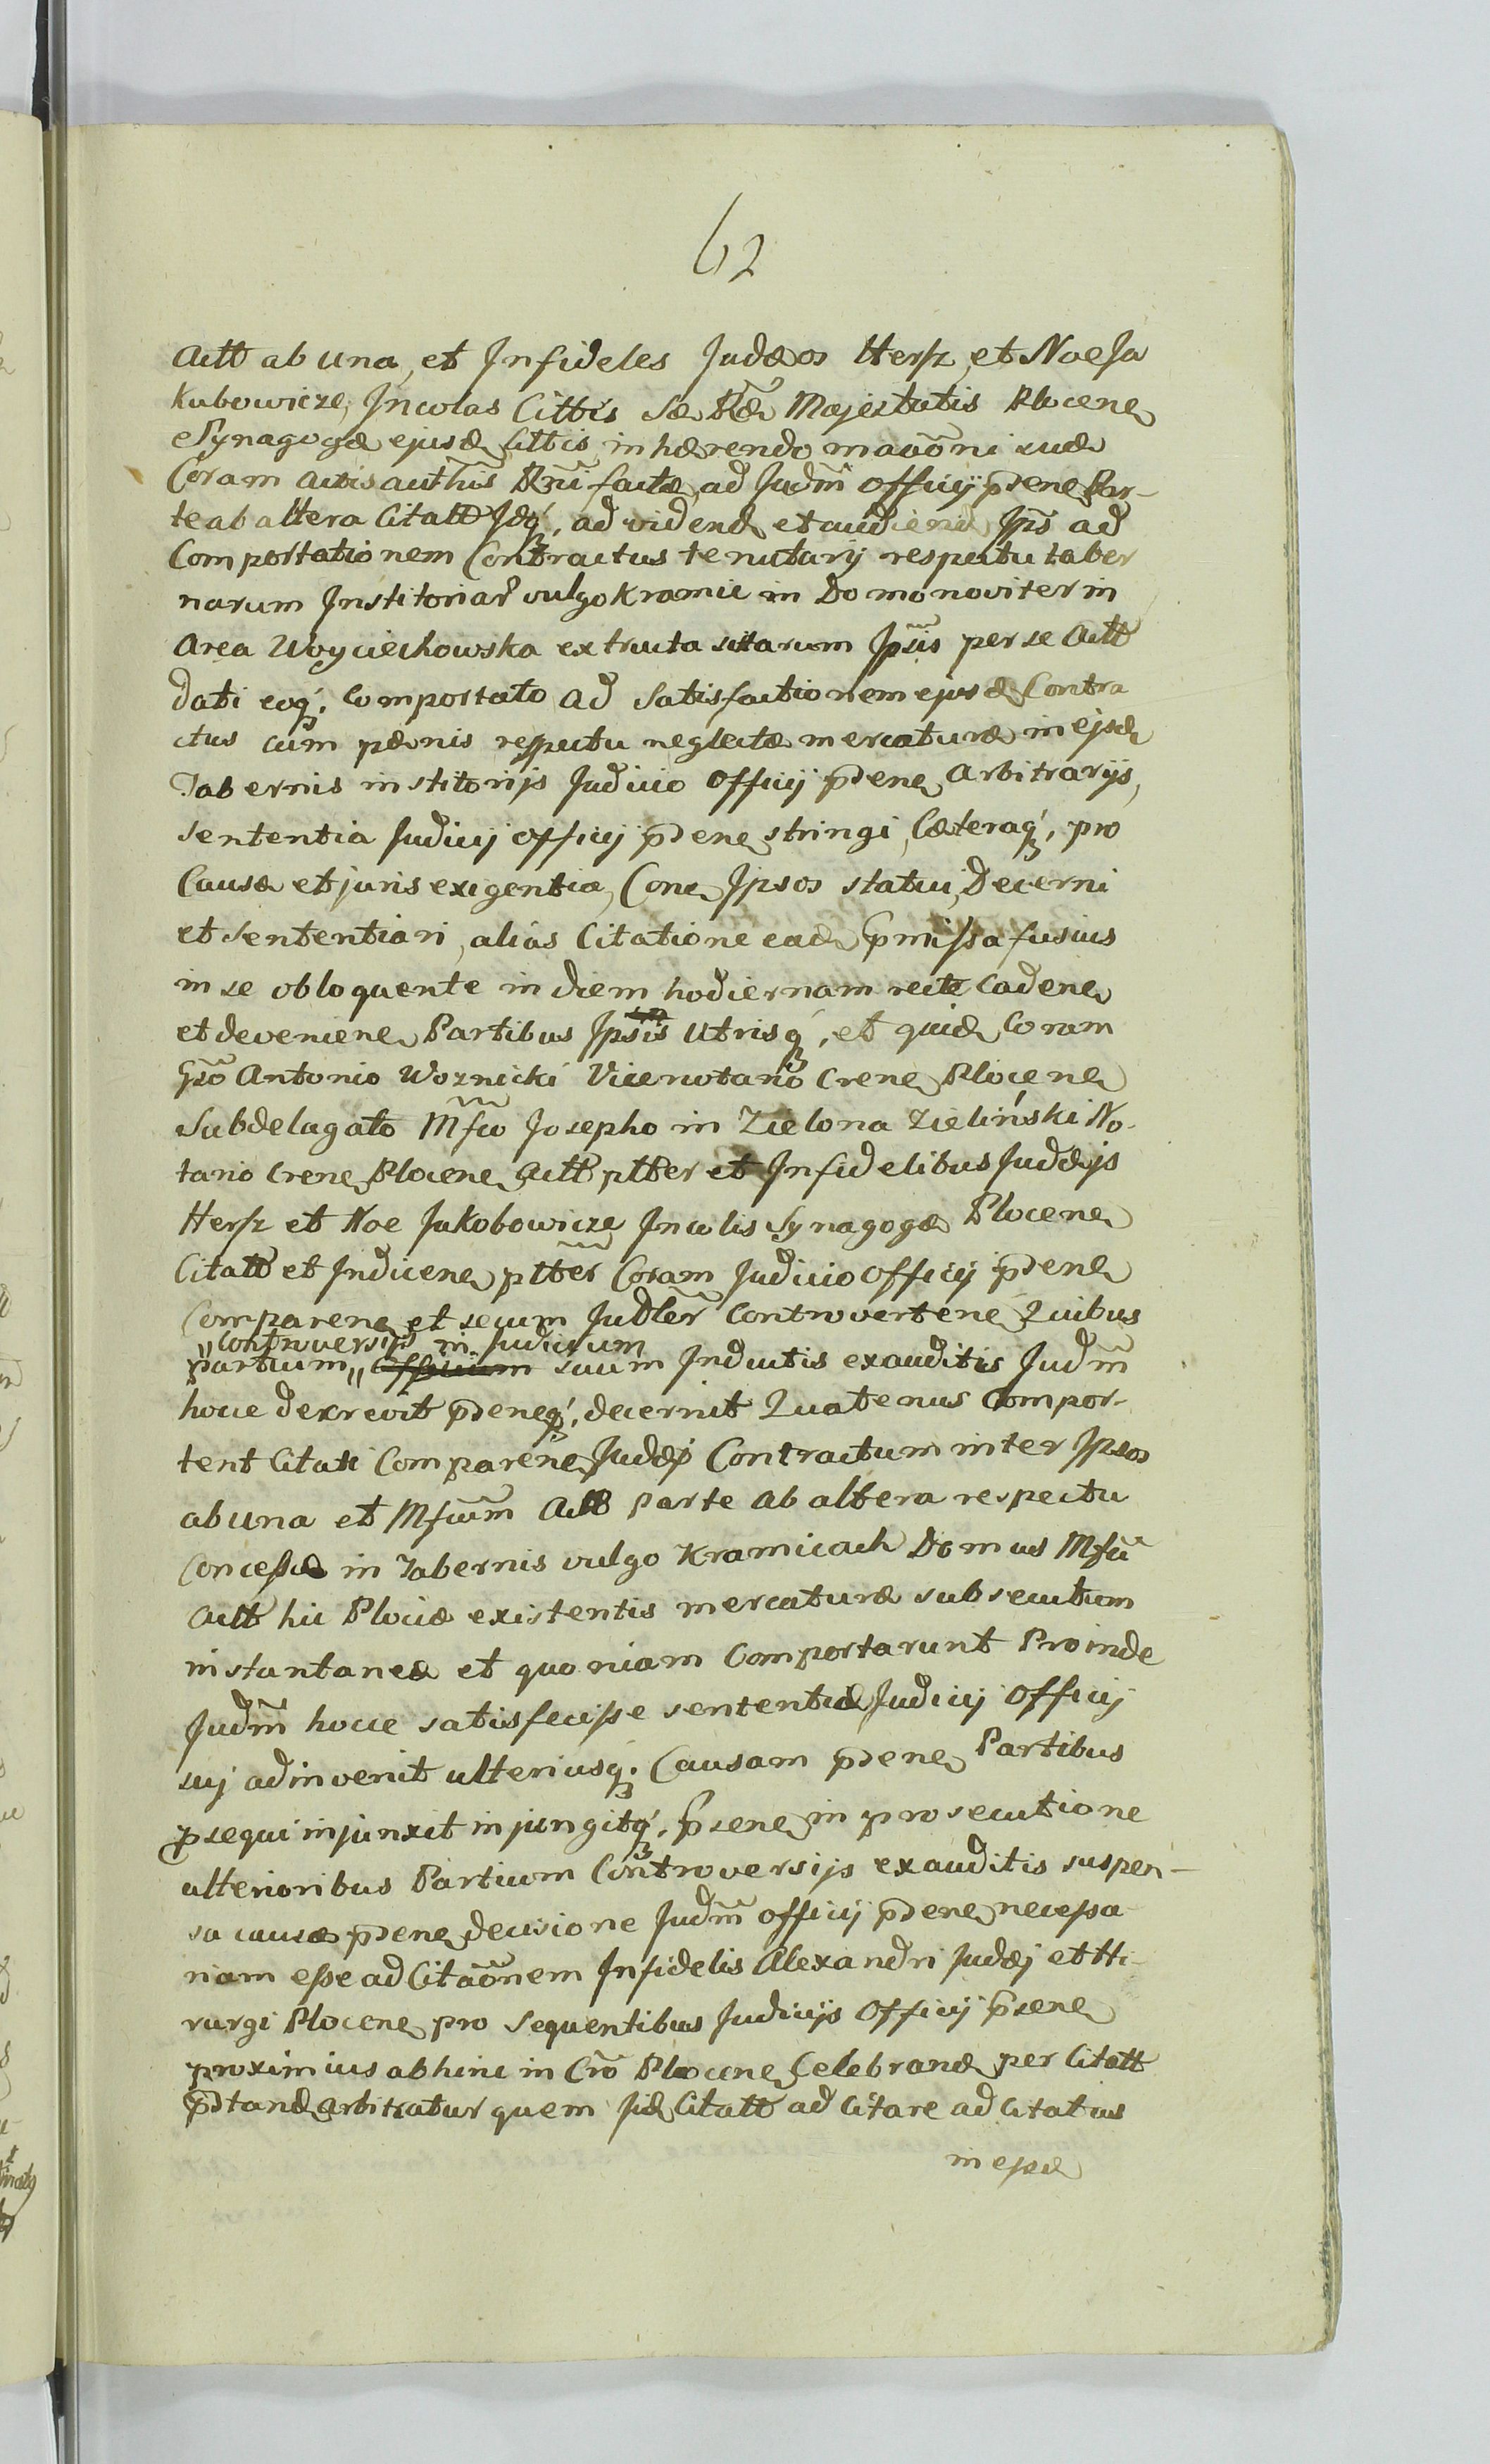 62
Actt ab una, et Infideles Judæos Hersz, et Noe Ja
kubowicze, Incolas Cittis Sæ Ræ Majestatis Plocene
e Synagoga ejusd Cittis inhærendo maõni suæ
Coram actis authis R3ũ factæ, ad Judm̃ officij p̃dene Par-
te ab altera Citatt Idq́3, ad vidend et audiend Ips̃ ad
Comportationem Contractus tenutarij respectu taber
narum Institoriar̃ vulgo Kramic in Domo noviter in
Area Woyciechowska extructa sitarum Ips̃is per se Actt
dati eoq́3 comportato ad Satisfactionem ejusd Contra
ctus cum pænis respectu neglectæ mercaturæ in ejsd
Tabernis institorijs Judicio Officij p̃dene Arbitrarijs,
sententia Judicij officij p̃dene stringi, Cæteraq́3, pro
Causæ et juris exigentia, Conc Ipsos statui, Decerni
et Sententiari, alias Citatione ead p̃missa fusius
in se obloquente in diem hodiernam recte Cadene
et deveniene Partibus Ipsis Utrisq́3, et quid Coram
Gso Antonio Woznicki Vicenotario Crene Plocene
Subdelagato Mfco Josepho in Zielona Zieliński No-
tario Crene Plocene Actt pltter et Infidelibus Judæis
Hersz et Noe Jakobowicze Incolis Synagogæ Plocene
Citatt et Indicene pltter Coram Judicio Officij p̃dene
Comparene et secum Judler̃ Controvertene Quibus
partium "Controversijs in Judicium" Officium suum Inductis exauditis Judm̃
hocce dexrevit p̃deneq́3, decernit Quatenus Compor-
tent Citati Comparene Judæi Contractum inter Ipsos
ab una et Mfcum Actt Parte ab altera respectu
Concessæ in Tabernis vulgo Kramicach Domus Mfci
Actt hic Plociæ existentis mercaturæ subsecutum
instantanee et quoniam Comportarunt Proinde
Judm̃ hocce satisfecisse sententiæ Judicij Officij
sui adinvenit ulteriusq́3 Causam p̃dene Partibus
p̃sequi injunxit injungitq́3, p̃sene in prosecutione
ulterioribus Partium Controversijs exauditis suspen-
sa causæ p̃dene decisione Judm̃ officij p̃dene necessa-
riam esse adCitaõnem Infidelis Alexandri Judæi et Hi-
rurgi Plocene pro Sequentibus Judicijs Officij p̃sene
proximius abhinc in Cro Plocene Celebrand per Citatt
p̃stand arbitratur quem iid Citatt ad Citare ad Citatus
in ejsd